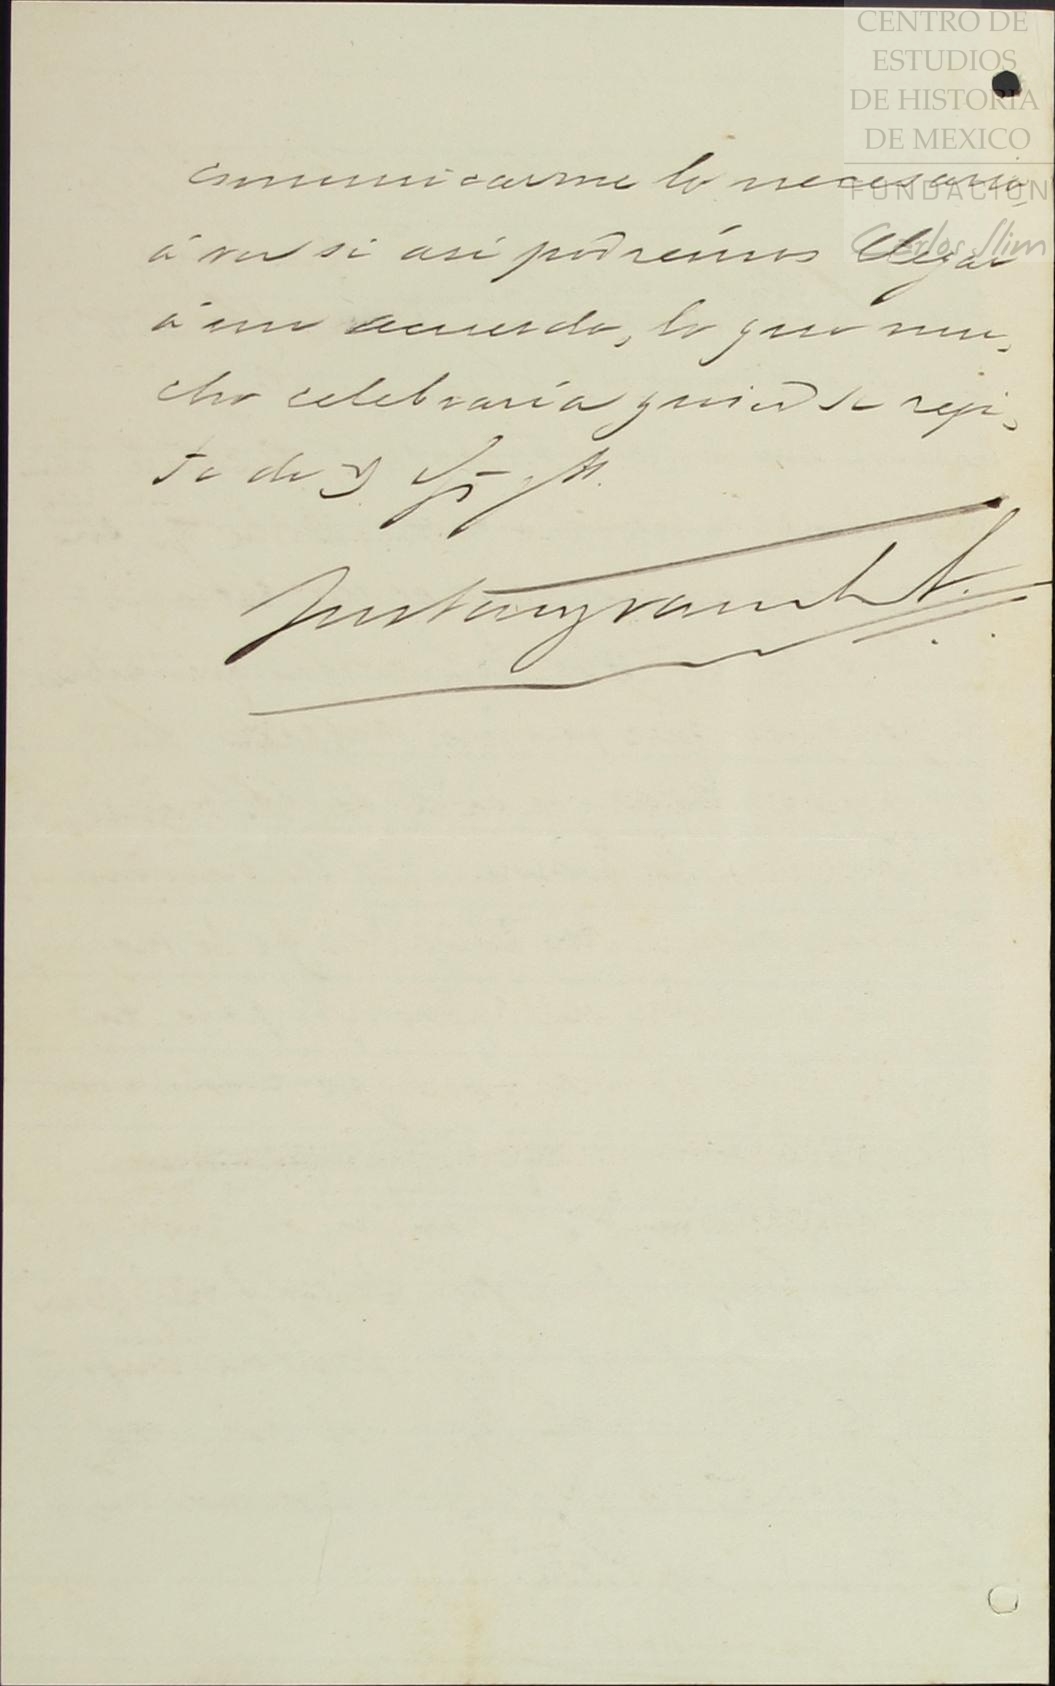 CENTRO DE
ESTUDIOS
DE HISTORIA
DE MEXICO
FUNDACIÓN
Carlos Slim
comunicarme lo necesario,
á ver si asi podremos llegar
á un acuerdo, lo que mu-
cho celebraría quien se repi-
te de